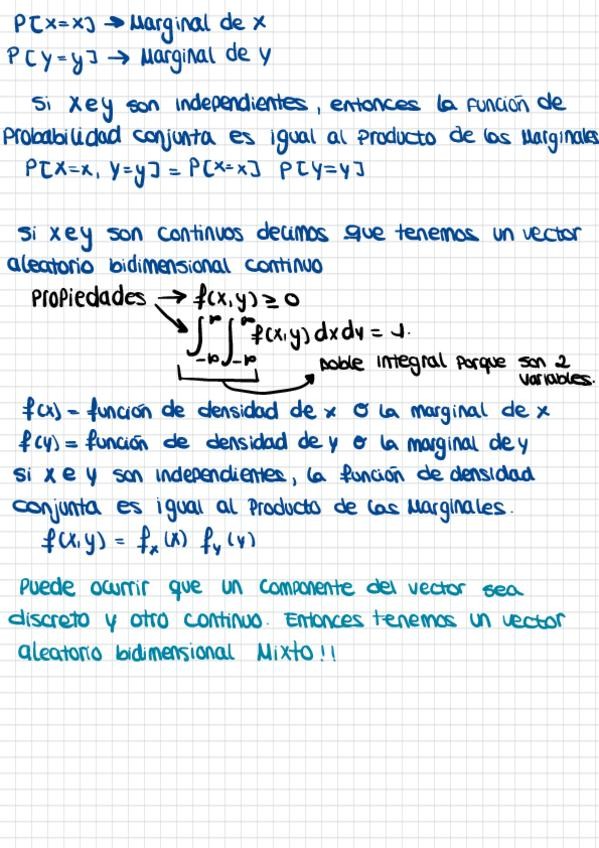 P[X=x] → Marginal de x
P[Y=y] → Marginal de y
si x e y son independientes, entonces la función de
Probabilidad conjunta es igual al Producto de las Marginales
P[X=x, Y=y] = P[X=x] P[Y=y]
si x e y son continuos decimos que tenemos un vector
aleatorio bidimensional continuo
Propiedades → f(x,y) ≥ 0
∫_{-∞}^{∞} ∫_{-∞}^{∞} f(x,y) dx dy = 1.
Doble integral Porque son 2
variables.
f(x) = función de densidad de x o la marginal de x
f(y) = función de densidad de y o la marginal de y
si x e y son independientes, la función de densidad
conjunta es igual al Producto de las Marginales.
f(x,y) = fₓ(x) f_y(y)
Puede ocurrir que un componente del vector sea
discreto y otro continuo. Entonces tenemos un vector
aleatorio bidimensional Mixto!!